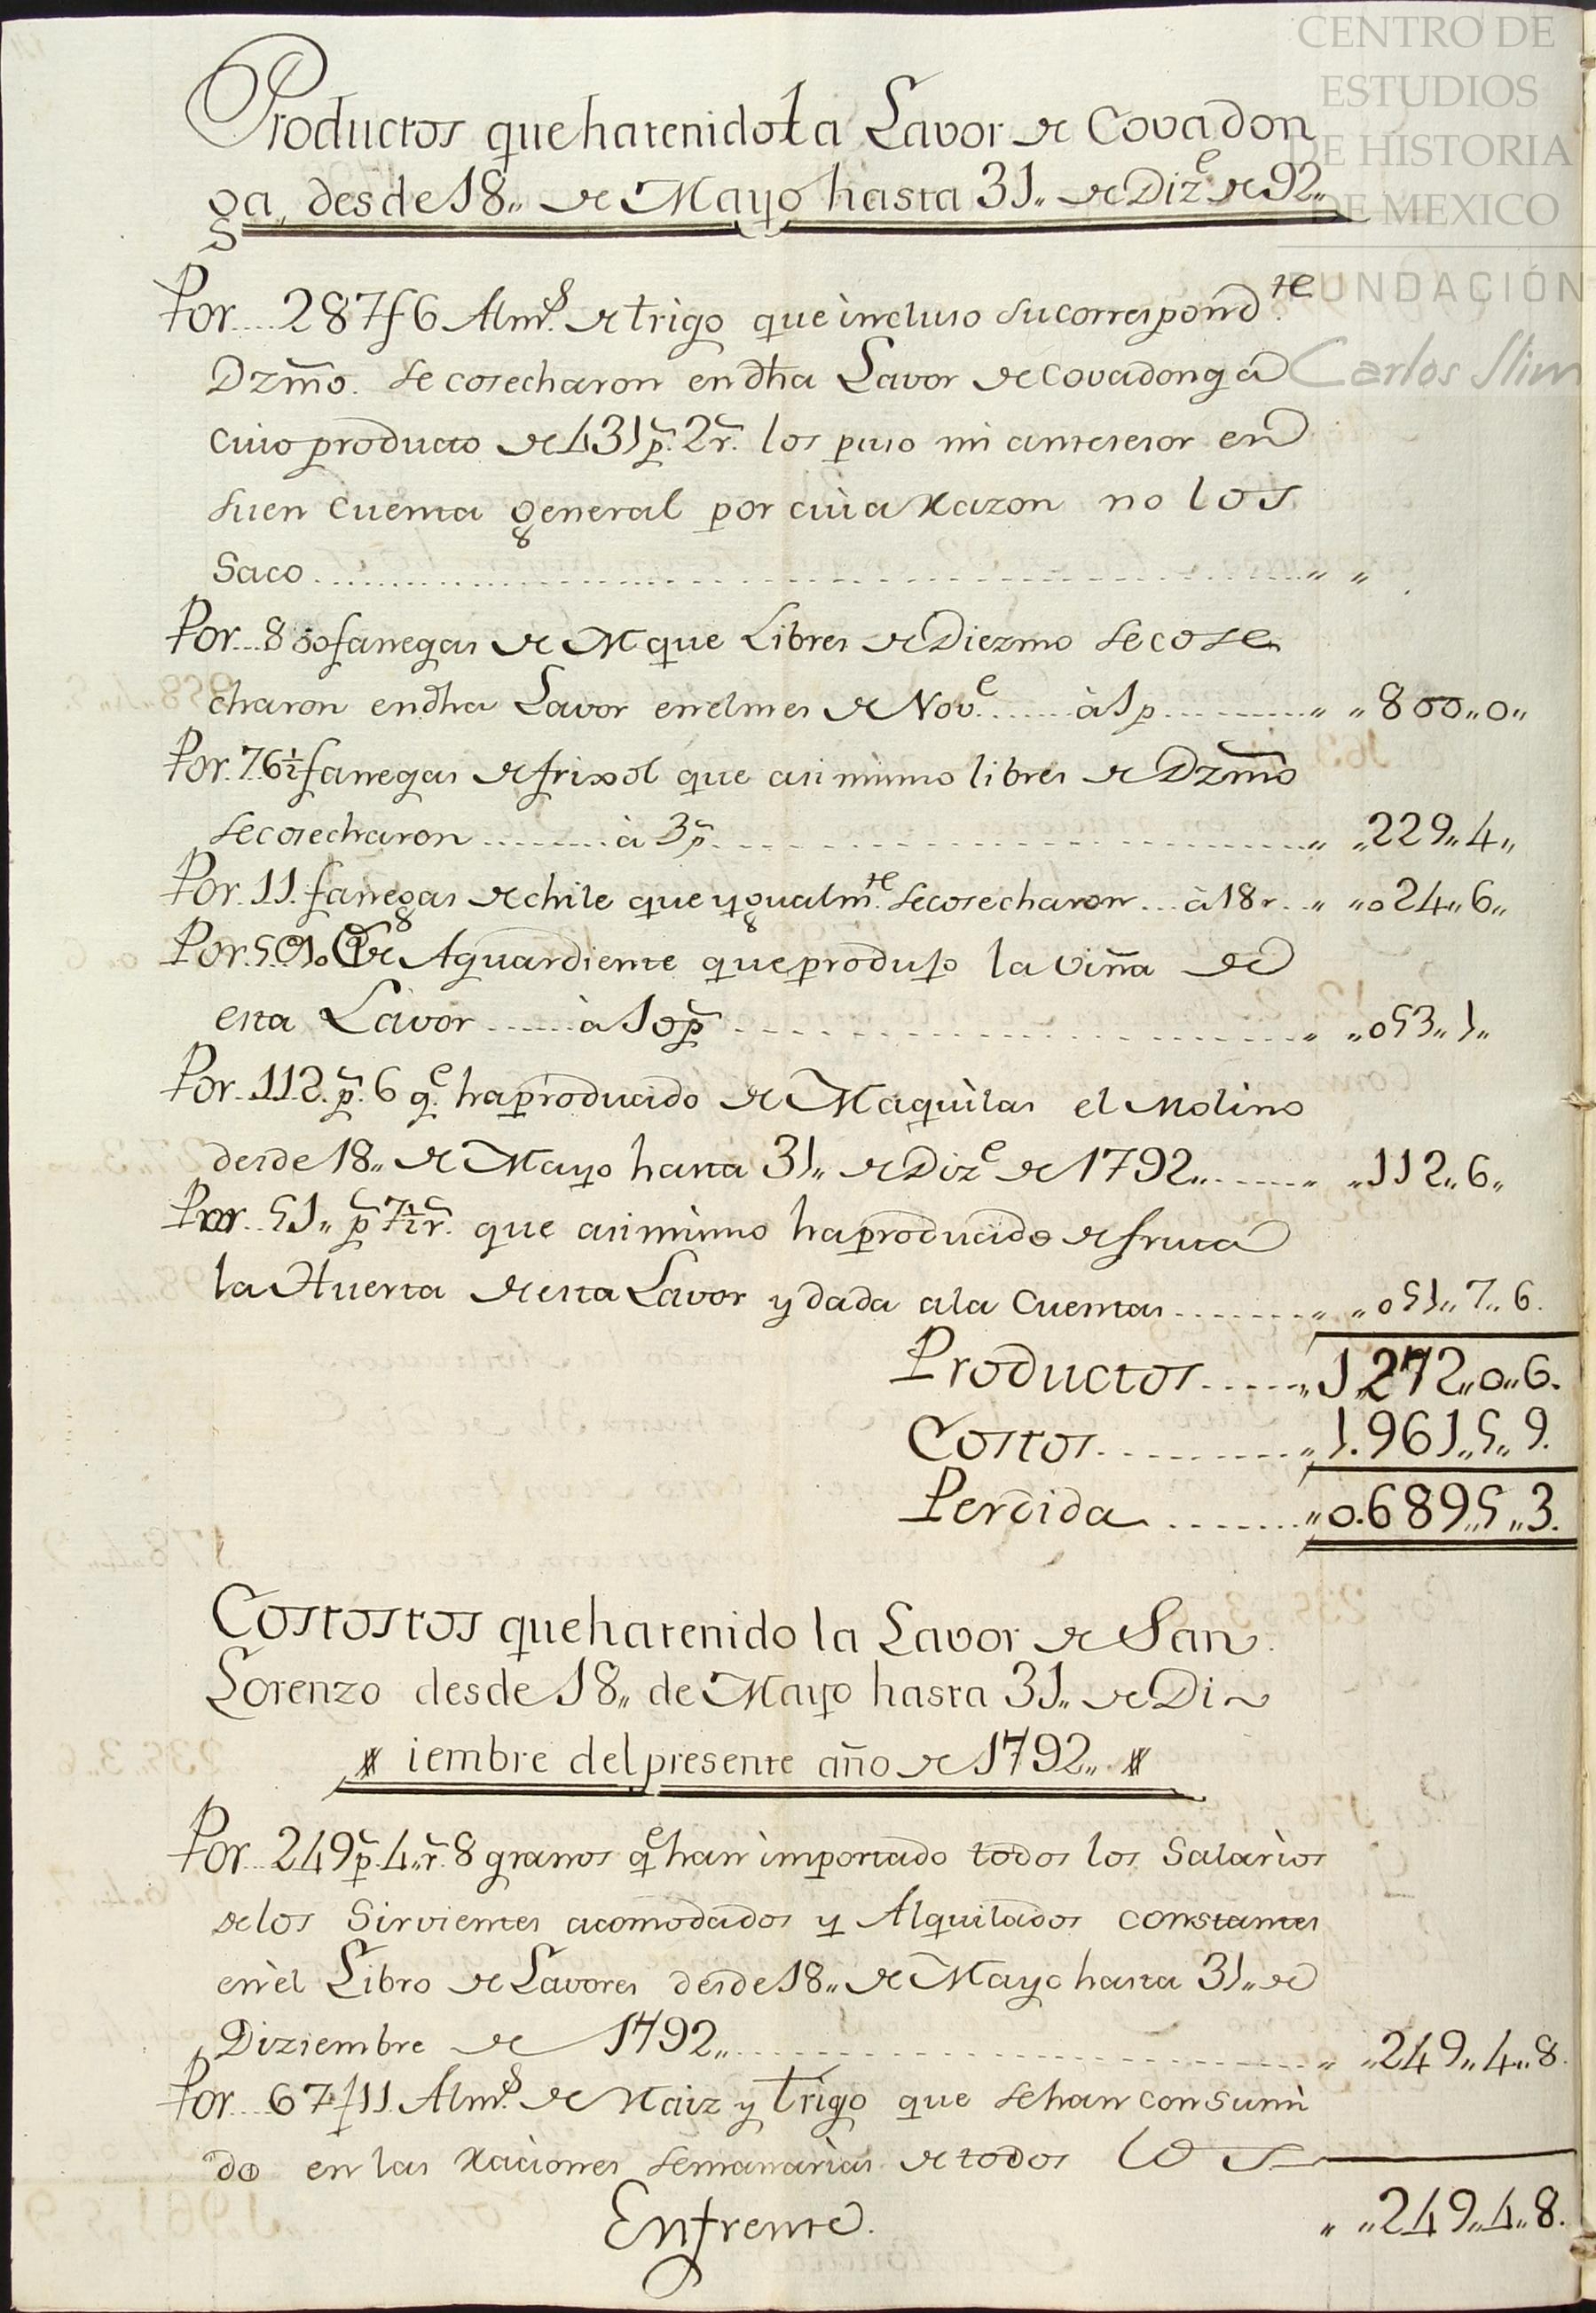 CENTRO DE
ESTUDIOS
DE HISTORIA
DE MEXICO
FUNDACIÓN
Carlos Slim
Productos que ha tenido la Lavor de Covadon
ga, desde 18,, de Mayo hasta 31,, de Diz.e de 92,,
Por... 287f 6 Alm.s de trigo que incluso su correspond.te
Dzmo. se cosecharon en dha Lavor de Covadonga
cuio producto de 431 p.s 2 r.s los puso mi antecesor en
su en cuenta general por cuia razon no los
Saco ........ ,, ,,
Por... 800 fanegas de M que Libres de Diezmo se cose
charon en dha Lavor en el mes de Nov.e ...... à 1 p ...... ,, ,, 800,,0,,
Por. 76 1/2 fanegas de frixol que asi mismo libres de Dzmo
se cosecharon ........ à 3 p.s ........ ,, ,, 229,,4,,
Por. 11. fanegas de chile que ygualm.te se cosecharon ... à 18 r. .. ,, ,, 024,,6,,
Aguardiente que produjo la viña de
esta Lavor ...... à 10 p.s ........ ,, ,, 053,,1,,
Por. 112. p.s 6 q.e ha producido de Maquilas el Molino
desde 18,, de Mayo hasta 31,, de Diz.e de 1792,, ...... ,, ,, 112,,6,,
Por. 51,, p.s 7 1/2 r.s que asi mismo ha producido de fruta
la Huerta de esta Lavor y dada a la Cuentas ........ ,, ,, 051,,7,,6.
Productos ..... ,, 1,,272,,0,,6.
Costos .......... ,, 1.961,,5,,9.
Perdida ........ ,, 0.689,,5,,3.
Costostos que ha tenido la Lavor de San
Lorenzo desde 18,, de Mayo hasta 31,, de Di~
iembre del presente año de 1792,,
Por... 249 p.s 4,, r.s 8 granos q.e han importado todos los Salarios
de los Sirvientes acomodados y Alquilados constantes
en el Libro de Lavores desde 18,, de Mayo hasta 31,, de
Diziembre de 1792,, ........ ,, ,, 249,,4,,8.
Por... 67 f 11 Alm.s de Maiz y trigo que se han consumi
do en las raciones semanarias de todos los
Enfrente. ,, ,, 249,,4,,8.